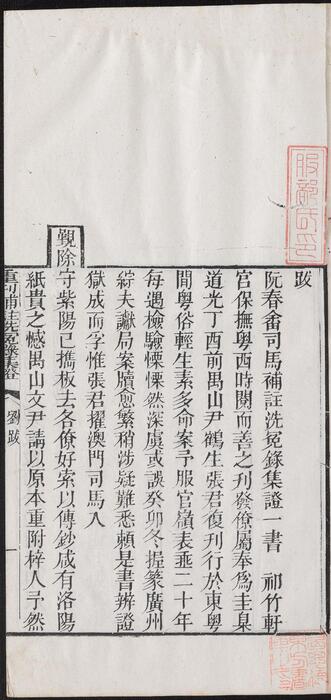 跋
阮春畬司馬補註洗冤錄集證一書祁竹軒
宮保撫粵西時閱而善之刊發僚屬奉爲圭臬
道光丁酉前禺山尹鶴生張君復刊行於東粤
閒粤俗輕生素多命案予服官嶺表垂二十年
每遇檢驗慄慄然深虞或誤癸卯冬握篆廣州
綜夫讞局案牘愈繁稍涉疑難悉賴是書辨證
獄成而孚惟張君擢澳門司馬入
覲除守紫陽已攜板去各僚好索以傳鈔咸有洛陽
紙貴之憾禺山文尹請以原本重附梓人予然
重刊補註洗冤錄集證 劉跋 一
服部氏印